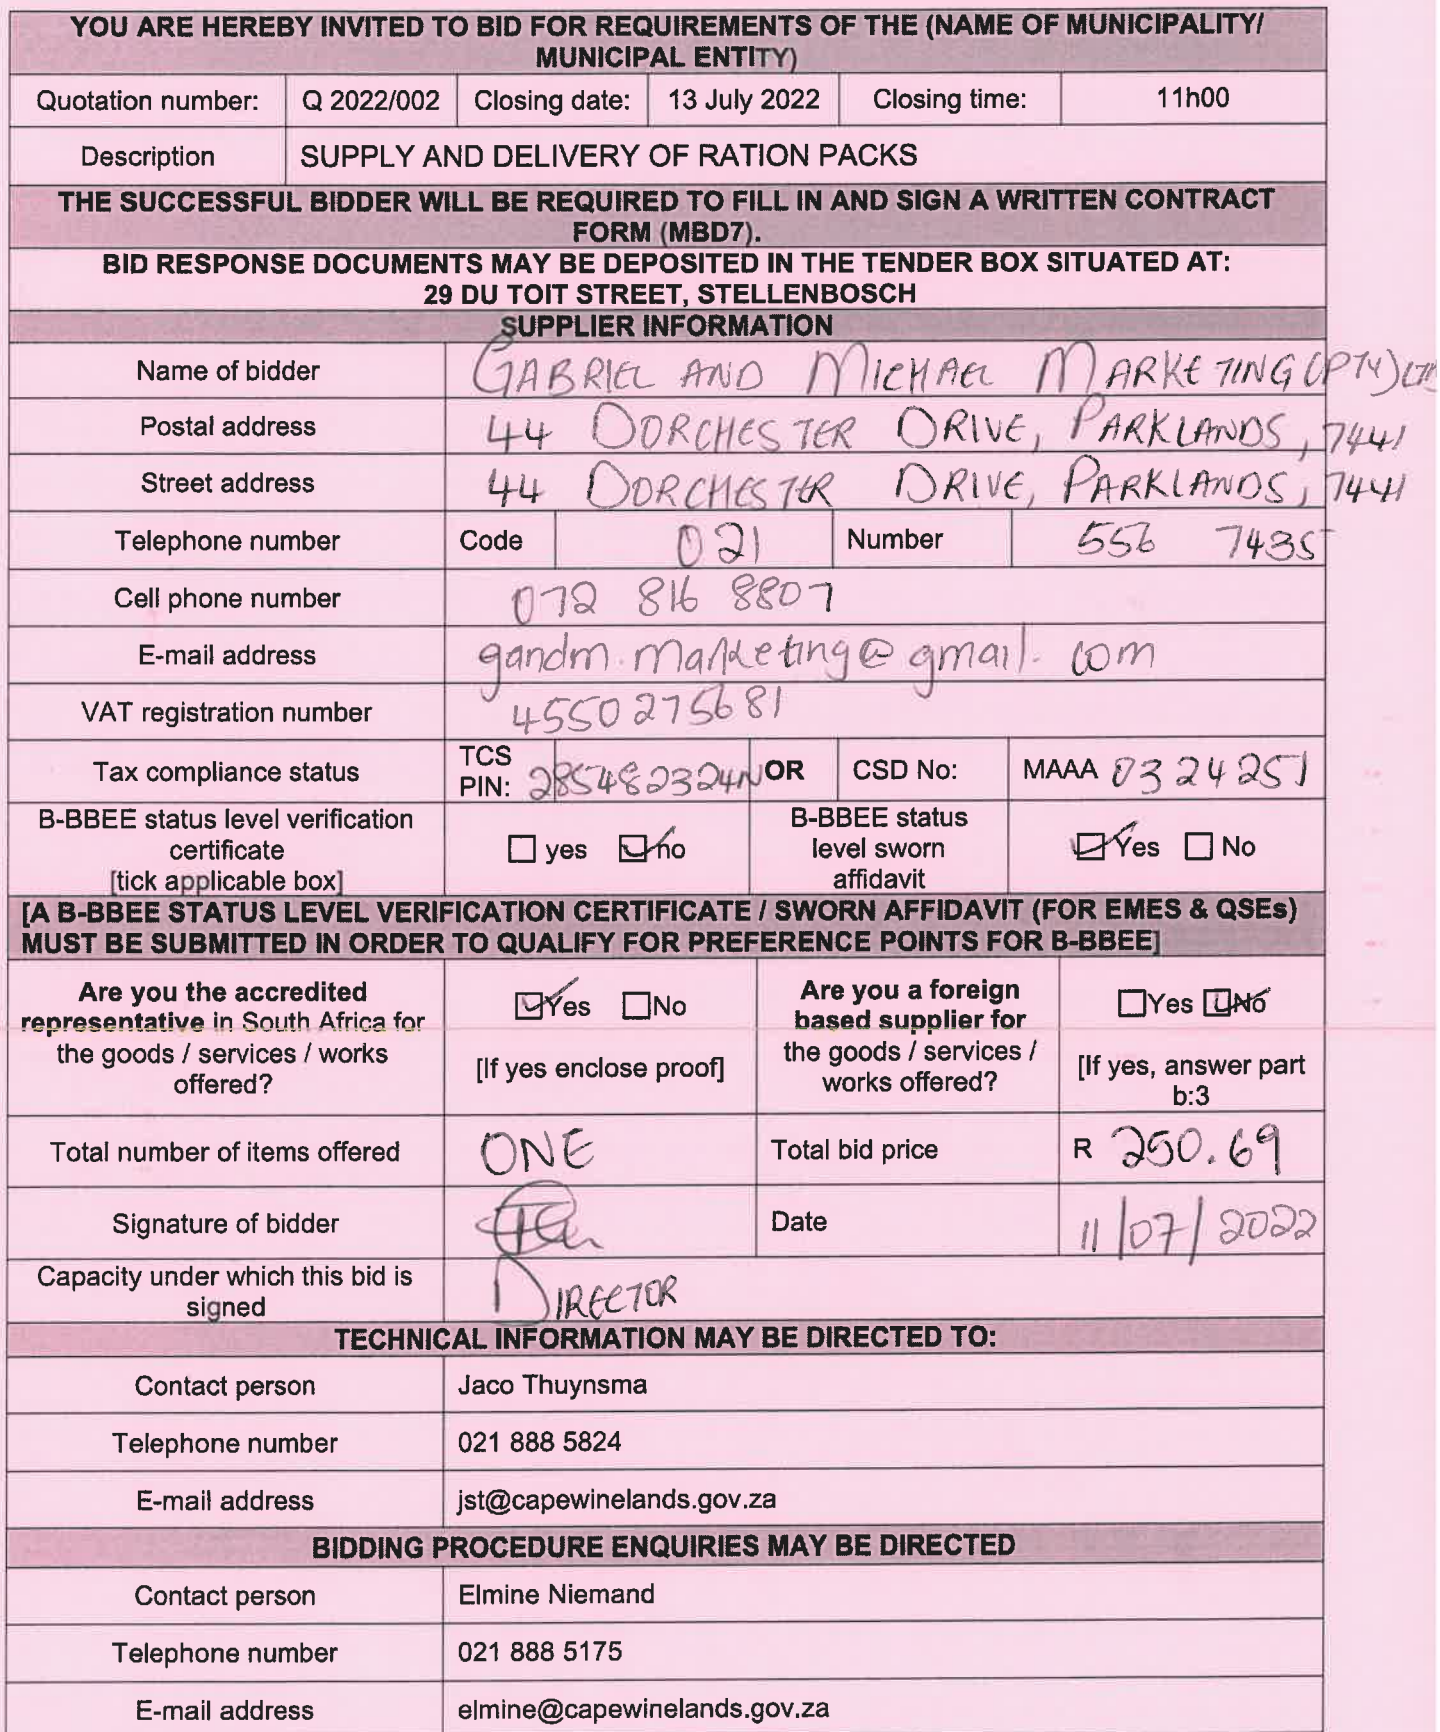 YOU ARE HEREBY INVITED TO BID FOR REQUIREMENTS OF THE (NAME OF MUNICIPALITY/
MUNICIPAL ENTITY)
Quotation number: Q 2022/002 Closing date: 13 July 2022 Closing time: 11h00
Description SUPPLY AND DELIVERY OF RATION PACKS
THE SUCCESSFUL BIDDER WILL BE REQUIRED TO FILL IN AND SIGN A WRITTEN CONTRACT
FORM (MBD7).
BID RESPONSE DOCUMENTS MAY BE DEPOSITED IN THE TENDER BOX SITUATED AT:
29 DU TOIT STREET, STELLENBOSCH
SUPPLIER INFORMATION
Name of bidder GABRIEL AND MICHAEL MARKETING (PTY) LTD
Postal address 44 DORCHESTER DRIVE, PARKLANDS, 7441
Street address 44 DORCHESTER DRIVE, PARKLANDS, 7441
Telephone number Code 021 Number 556 7435
Cell phone number 072 816 8807
E-mail address gandm.marketing@gmail.com
VAT registration number 4550275681
Tax compliance status TCS
PIN: 285482324N OR CSD No: MAAA 0324251
B-BBEE status level verification
certificate
[tick applicable box]
yes no
B-BBEE status
level sworn
affidavit
Yes No
[A B-BBEE STATUS LEVEL VERIFICATION CERTIFICATE / SWORN AFFIDAVIT (FOR EMES & QSEs)
MUST BE SUBMITTED IN ORDER TO QUALIFY FOR PREFERENCE POINTS FOR B-BBEE]
Are you the accredited
representative in South Africa for
the goods / services / works
offered?
Yes No
[If yes enclose proof]
Are you a foreign
based supplier for
the goods / services /
works offered?
Yes No
[If yes, answer part
b:3
Total number of items offered ONE Total bid price R 250.69
Signature of bidder Date 11/07/2022
Capacity under which this bid is
signed
DIRECTOR
TECHNICAL INFORMATION MAY BE DIRECTED TO:
Contact person Jaco Thuynsma
Telephone number 021 888 5824
E-mail address jst@capewinelands.gov.za
BIDDING PROCEDURE ENQUIRIES MAY BE DIRECTED
Contact person Elmine Niemand
Telephone number 021 888 5175
E-mail address elmine@capewinelands.gov.za